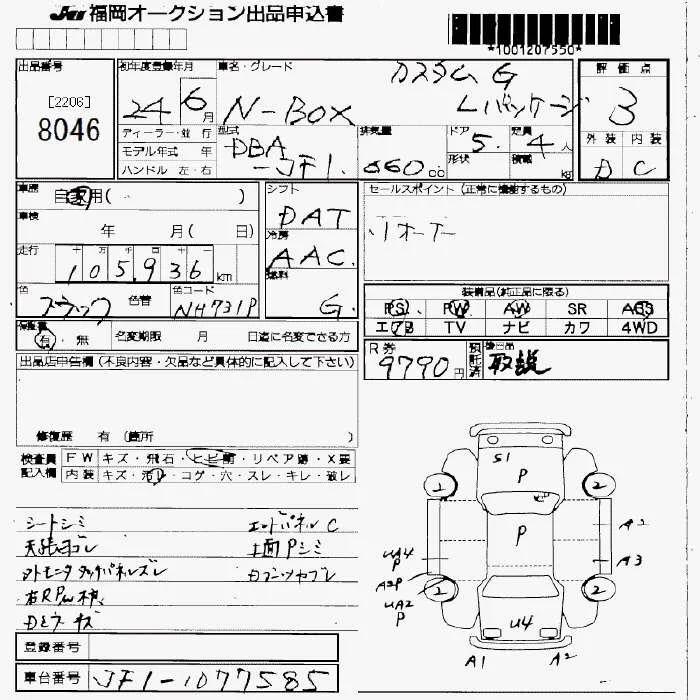 JU 福岡オークション出品申込書
*1001207550*
出品番号
[2206]
8046
初年度登録年月
24 6 月
ディーラー・並 行
モデル年式 年
ハンドル 左・右
車名・グレード
カスタム G
N-BOX Lパッケージ
型式
DBA
-JF1.
排気量
660 cc
ドア 5. 定員 4 人
形状 積載 kg
評価点
3
外装 内装
D C
車歴 自家用( )
車検 年 月( 日)
走行 十 万 千 百 十 一
105,936 km
色 ブラック 色替
色コード NH731P
シフト
DAT
冷房
AAC.
燃料
G.
セールスポイント (正常に機能するもの)
装備品(純正品に限る)
PS PW AW SR ABS
エアB TV ナビ カワ 4WD
保証書
有・無 名変期限 月 日迄に名変できる方
R券
9790 円
預託済
後日品
取説
出品店申告欄 (不良内容・欠品など具体的に記入して下さい)
修復歴 有 (箇所 )
検査員記入欄
FW キズ・飛石・ヒビ割・リペア跡・X要
内装 キズ・汚レ・コゲ・穴・スレ・キレ・破レ
シートシミ
エンドパネル C
天張ヨゴレ
上面Pシミ
登録番号
車台番号 JF1-1077585
S1
P
P
2
2
2
2
A2
A3
UA4
P
A2P
UA2
P
U4
A1
A2